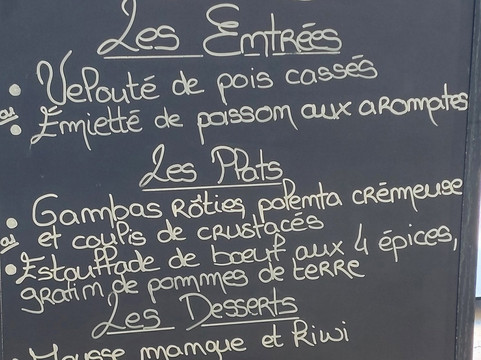 Les Entrées
• Velouté de pois cassés
ou
• Émietté de poisson aux aromates
Les Plats
• Gambas Rôties, polenta crémeuse
et coulis de crustacés
ou
• Estouffade de bœuf aux 4 épices,
gratin de pommes de terre
Les Desserts
• Mousse mangue et kiwi